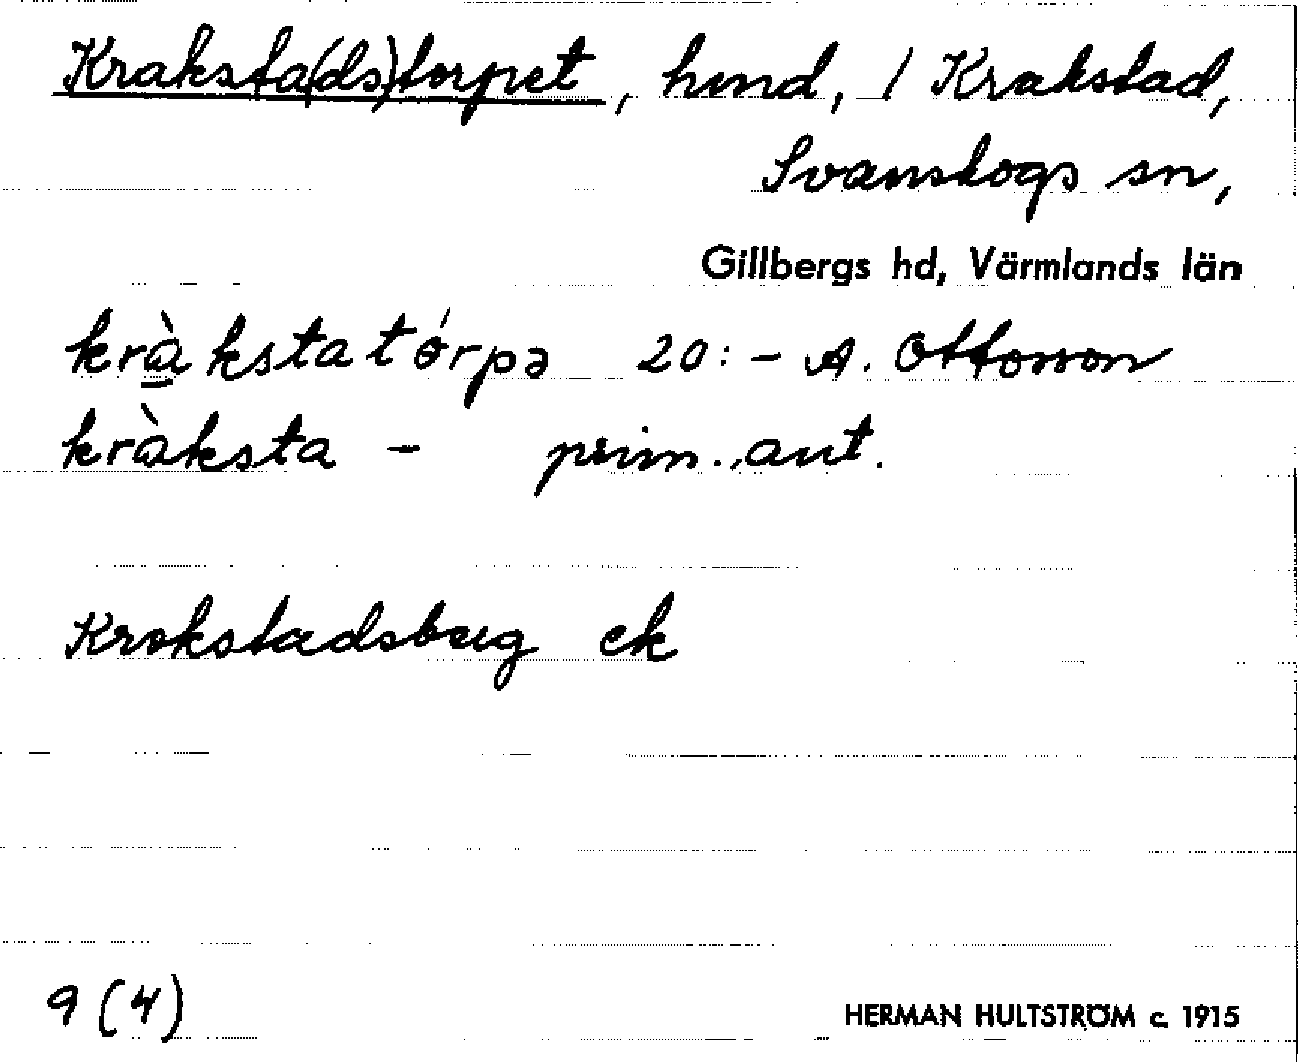 Kraksta(ds)torpet, hmd, / Krakstad,
Svanskogs sn,
Gillbergs hd, Värmlands län
kràkstatórpə 20:- A. Ottosson
kràksta - prim., ant.
Krokstadsberg ek
9 (4)
HERMAN HULTSTRÖM c. 1915